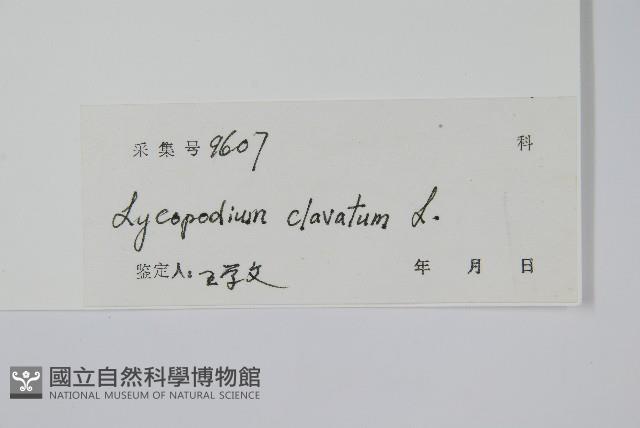 采集号 9607 科
Lycopodium clavatum L.
鉴定人: 王学文 年 月 日
國立自然科學博物館
NATIONAL MUSEUM OF NATURAL SCIENCE